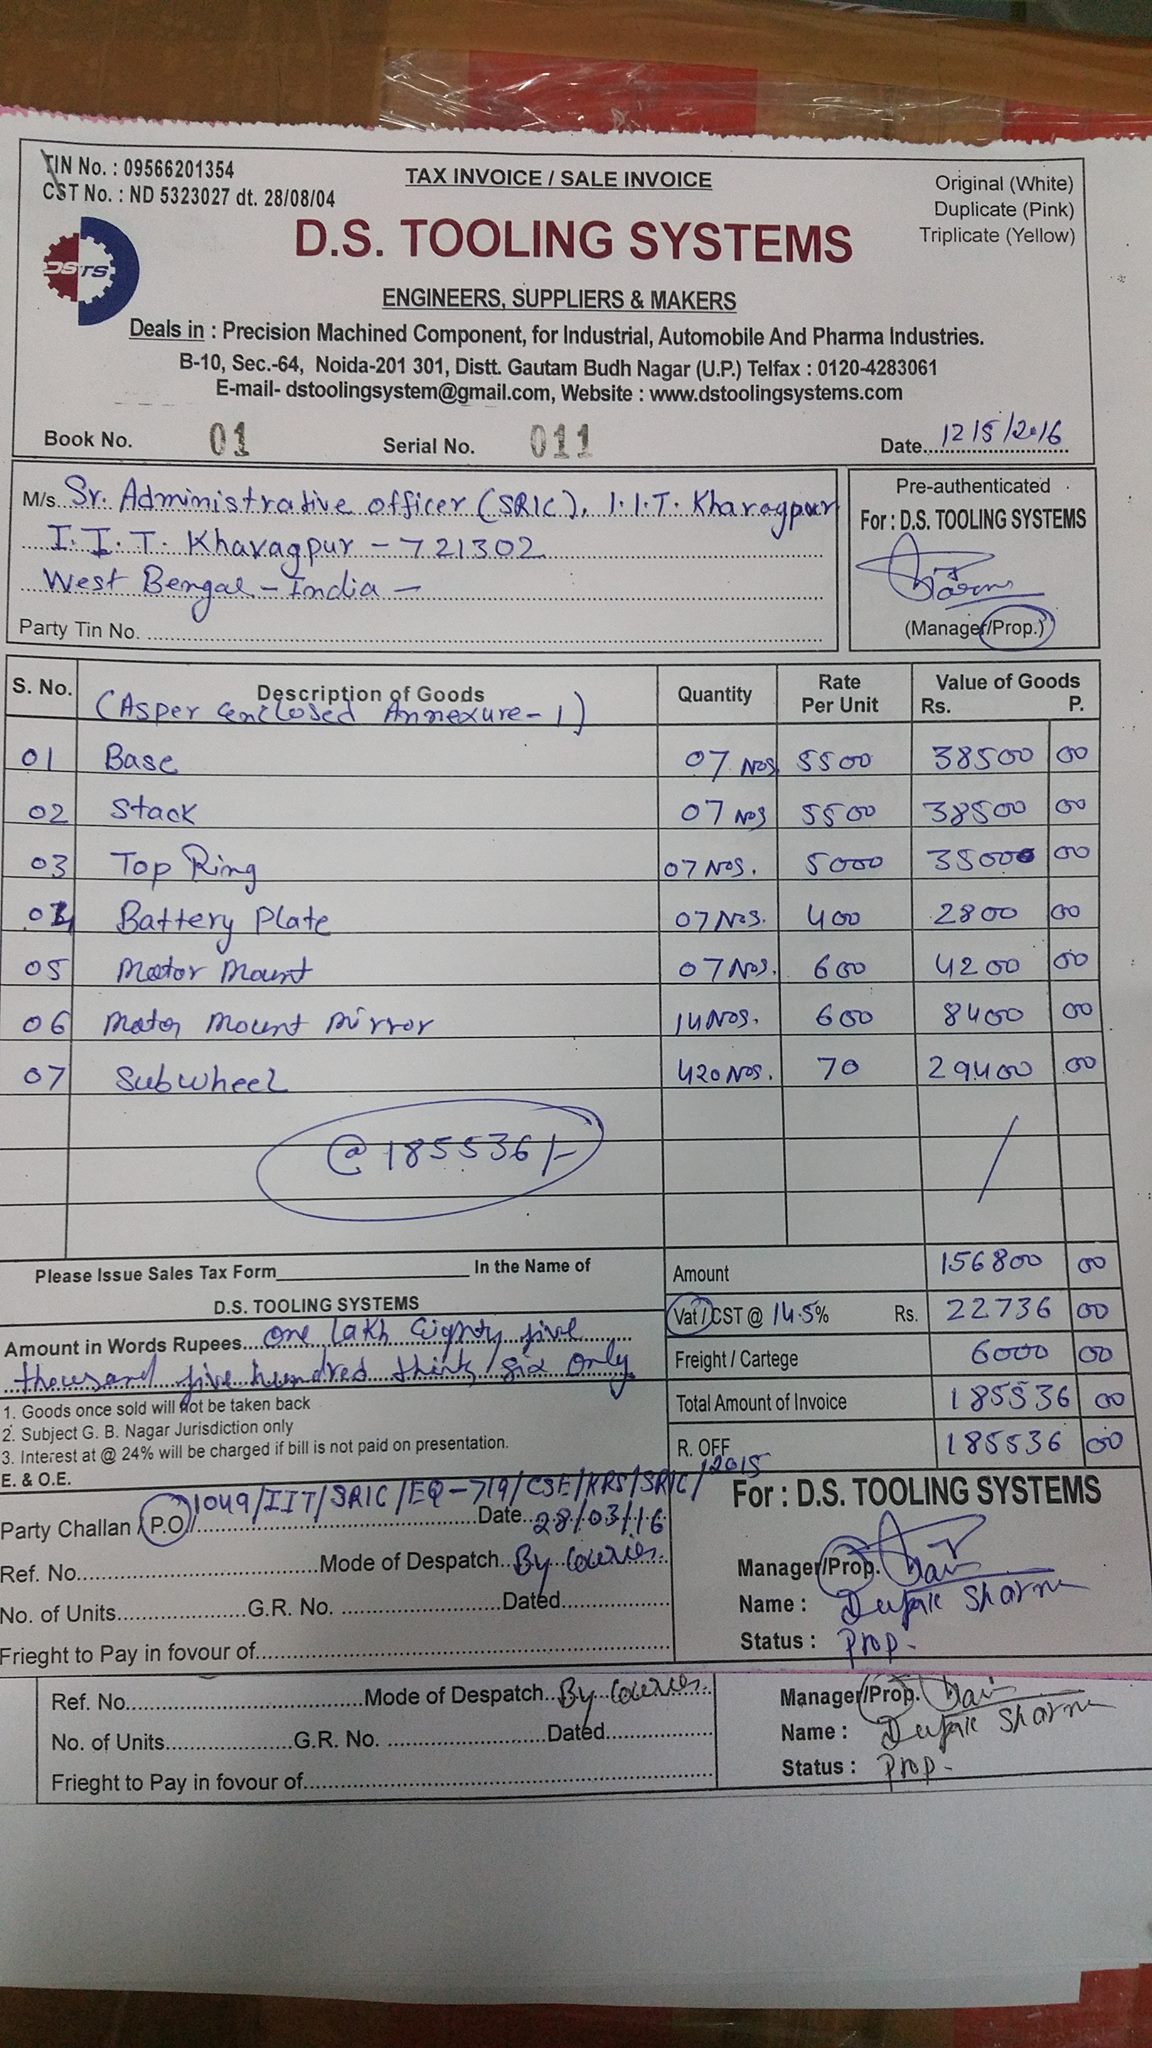 TIN No. : 09566201354
CST No. : ND 5323027 dt. 28/08/04
TAX INVOICE / SALE INVOICE
Original (White)
Duplicate (Pink)
Triplicate (Yellow)
DSTS
D.S. TOOLING SYSTEMS
ENGINEERS, SUPPLIERS & MAKERS
Deals in : Precision Machined Component, for Industrial, Automobile And Pharma Industries.
B-10, Sec.-64, Noida-201 301, Distt. Gautam Budh Nagar (U.P.) Telfax : 0120-4283061
E-mail- dstoolingsystem@gmail.com, Website : www.dstoolingsystems.com
Book No. 01 Serial No. 011 Date 12/5/2016
M/s Sr. Administrative officer (SRIC), I.I.T. Kharagpur
I.I.T. Kharagpur - 721302
West Bengal - India -
Party Tin No.
Pre-authenticated
For : D.S. TOOLING SYSTEMS
(Manager/Prop.)
S. No. Description of Goods Quantity Rate Per Unit Value of Goods Rs. P.
(As per enclosed Annexure-1)
01 Base 07 Nos 5500 38500 00
02 Stack 07 Nos 5500 38500 00
03 Top Ring 07 Nos. 5000 35000 00
04 Battery Plate 07 Nos. 400 2800 00
05 Motor Mount 07 Nos. 600 4200 00
06 Motor Mount Mirror 14 Nos. 600 8400 00
07 Subwheel 420 Nos. 70 29400 00
@ 185536/-
Please Issue Sales Tax Form In the Name of
D.S. TOOLING SYSTEMS
Amount in Words Rupees One lakh Eighty five
thousand five hundred thirty six only
Amount 156800 00
Vat / CST @ 14.5% Rs. 22736 00
Freight / Cartege 6000 00
Total Amount of Invoice 185536 00
R. OFF 185536 00
1. Goods once sold will not be taken back
2. Subject G. B. Nagar Jurisdiction only
3. Interest at @ 24% will be charged if bill is not paid on presentation.
E. & O.E.
1049/IIT/SRIC/EQ-719/CSE/KRS/SRIC/2015
Party Challan / P.O/ Date 28/03/16
Ref. No. Mode of Despatch By Courier.
No. of Units G.R. No. Dated
Frieght to Pay in fovour of
For : D.S. TOOLING SYSTEMS
Manager/Prop.
Name : Deepak Sharma
Status : Prop.
Ref. No. Mode of Despatch By Courier.
No. of Units G.R. No. Dated
Frieght to Pay in fovour of
Manager/Prop.
Name : Deepak Sharma
Status : Prop-